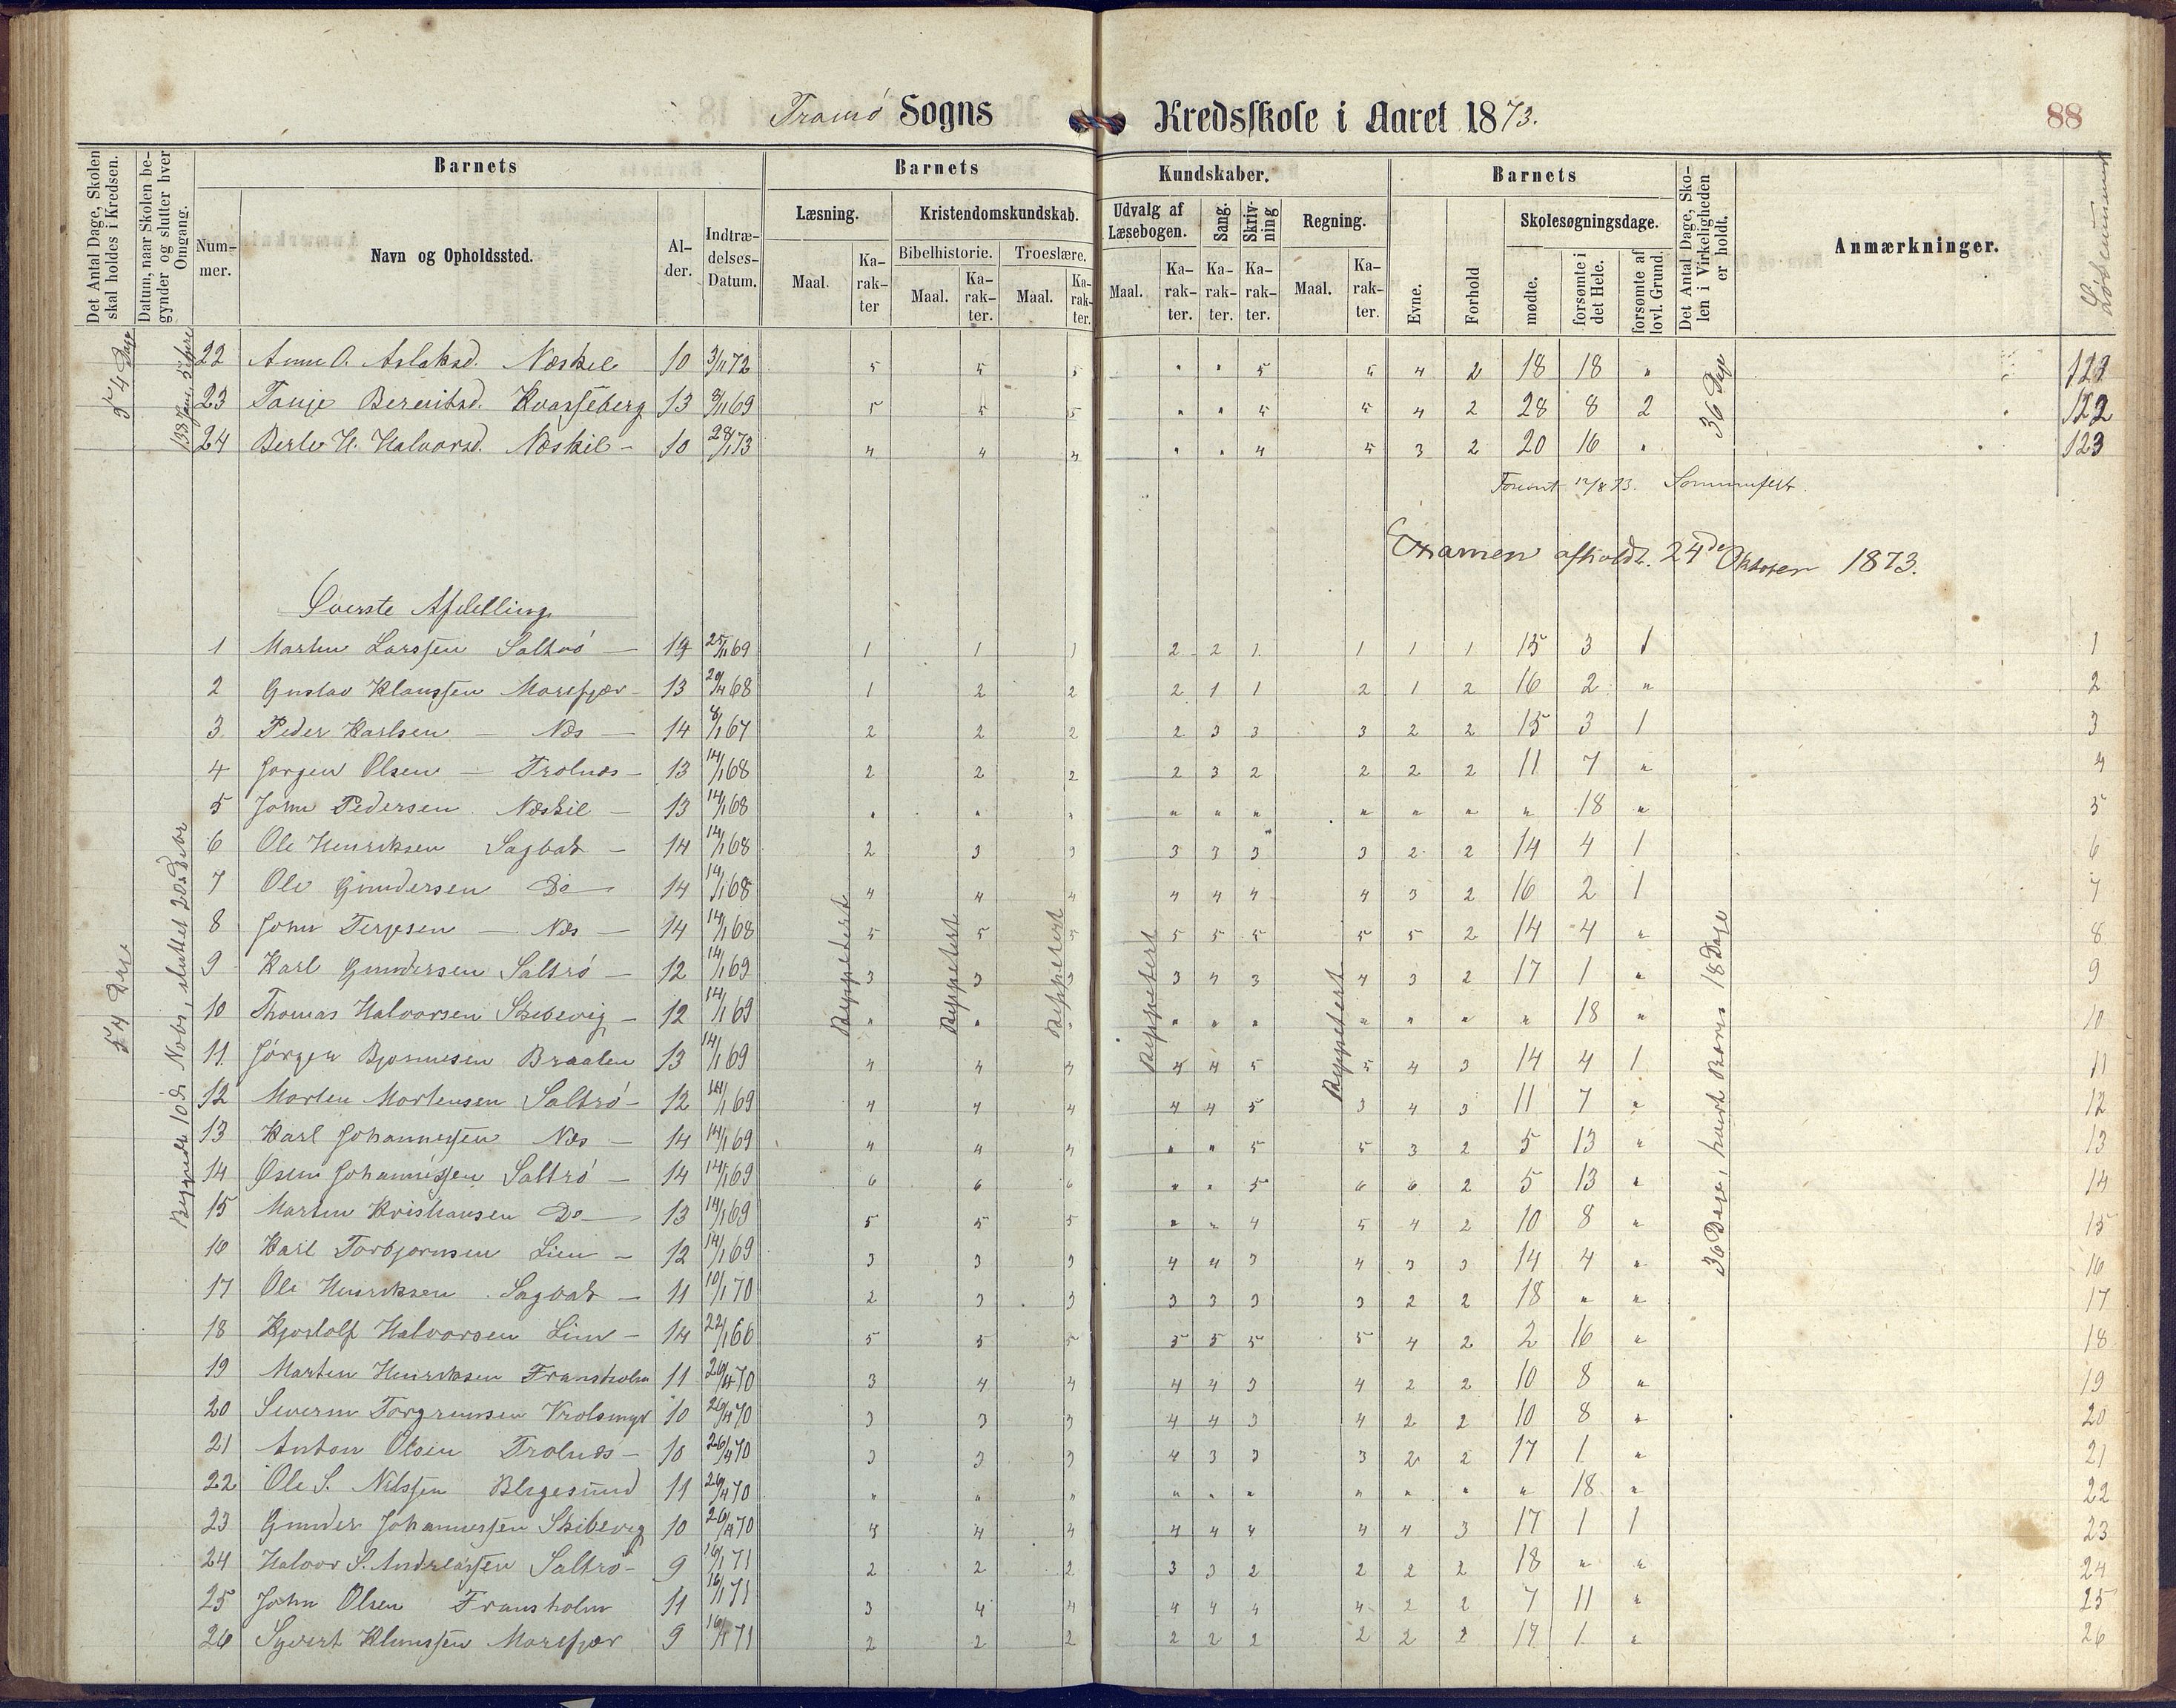 Tromø Sogns Kredsskole i Aaret 1873.
88
Det Antal Dage, Skolen skal holdes i Kredsen.
Datum, naar Skolen begynder og slutter hver Omgang.
Barnets
Nummer.
Navn og Opholdssted.
Alder.
Indtrædelses-Datum.
Barnets Kundskaber.
Læsning.
Kristendomskundskab.
Bibelhistorie. Troeslære.
Udvalg af Læsebogen.
Sang.
Skrivning
Regning.
Maal. Karakter Maal. Karakter. Maal. Karakter. Maal. Karakter. Karakter. Karakter. Maal. Karakter.
Barnets
Evne.
Forhold
Skolesøgningsdage.
mødte.
forsømte i det Hele.
forsømte af lovl. Grund.
Det Antal Dage, Skolen i Virkeligheden er holdt.
Anmærkninger.
Løbenummer
54 Dage
36 Dage
22 Anne O. Aslaksd. Næskil 10 3/11 72 5 5 5 " " 5 5 4 2 18 18 " 121
23 Tanje Berentsd. Kvasseberg 13 3/11 69 5 5 5 " " 5 5 4 2 28 8 2 122
24 Berle H. Halvorsd. Næskil - 10 28/1 73 4 4 4 " " 4 5 3 2 20 16 " 123
12/8 73.
Examen afholdt 24de Oktober 1873.
Øverste Afdelling
54 Dage
Begyndte 10de Nobr, sluttet 20de Decbr
Reppetert
Reppetert
Reppetert
Reppetert
Reppetert
36 Dage, hvert Barn 18 Dage
1 Martin Larssen Saltrø — 14 25/11 69 1 1 1 2 2 1 1 1 1 15 3 1 1
2 Gustav Klaussen Marefjær - 13 20/4 68 1 2 2 2 1 1 2 1 2 16 2 " 2
3 Peder Karlsen — Næs — 14 8/1 67 2 2 2 2 3 3 3 2 2 15 3 1 3
4 Jørgen Olsen — Trolnæs - 13 14/1 68 2 2 2 2 3 2 2 2 2 11 7 " 4
5 John Pedersen Næskil - 13 14/1 68 " " " " " " " " " " 18 " 5
6 Ole Henriksen Sagbak - 14 14/1 68 2 3 3 3 3 3 3 2 2 14 4 1 6
7 Ole Gundersen Do — 14 14/1 68 4 4 4 4 4 4 4 3 2 16 2 1 7
8 John Terjesen — Næs — 14 14/1 68 5 5 5 5 5 5 5 5 2 14 4 " 8
9 Karl Gundersen Saltrø - 12 14/1 69 3 3 3 3 4 3 4 3 2 17 1 " 9
10 Thomas Halvorsen Skibevig - 12 14/1 69 " " " " " " " " " " 18 " 10
11. Jörgen Bjornesen Braaten 13 14/1 69 4 4 4 4 4 5 5 4 3 14 4 1 11
12 Morten Mortensen Saltrø - 12 14/1 69 4 4 4 4 4 5 3 4 3 11 7 " 12
13 Karl Johannessen Næs - 14 14/1 69 4 4 4 " " 5 5 3 2 5 13 " 13
14 Øsen Johannessen Saltrø - 14 14/1 69 6 6 6 " " 5 6 6 2 5 13 " 14
15 Martin Kristiansen Do — 13 14/1 69 5 5 5 " " 4 5 4 2 10 8 " 15
16 Karl Torbjørnsen Lien - 12 14/1 69 3 3 3 4 4 3 4 3 3 14 4 " 16
17 Ole Henriksen Sagbak - 11 10/1 70 2 3 3 3 3 3 3 2 2 18 " " 17
18 Kjostolf Halvorsen Lien - 14 22/1 66 5 5 5 5 5 5 5 4 2 2 16 " 18
19 Morten Henriksen Fransholm 11 26/4 70 3 4 4 4 4 3 4 2 2 10 8 " 19
20 Severin Torgrimsen Krolsmyr 10 26/4 70 3 3 3 4 4 3 4 2 2 10 8 " 20
21 Anton Olsen Trolnæs - 10 26/4 70 3 3 3 4 3 3 3 2 2 17 1 " 21
22 Ole S. Nilssen Blegesund 11 26/4 70 " " " " " " " " " " 18 " 22
23 Gunder Johannessen Skibevig 10 26/4 70 4 4 4 4 4 4 4 4 3 17 1 1 23
24 Halvor S. Andreassen Saltrø - 9 16/1 71 2 2 2 3 3 2 2 2 2 18 " " 24
25 John Olsen Fransholm 11 16/1 71 3 4 4 4 4 4 4 2 2 7 11 " 25
26 Syvert Klaussen Marefjær 9 16/1 71 2 2 2 2 2 2 2 2 2 17 1 " 26